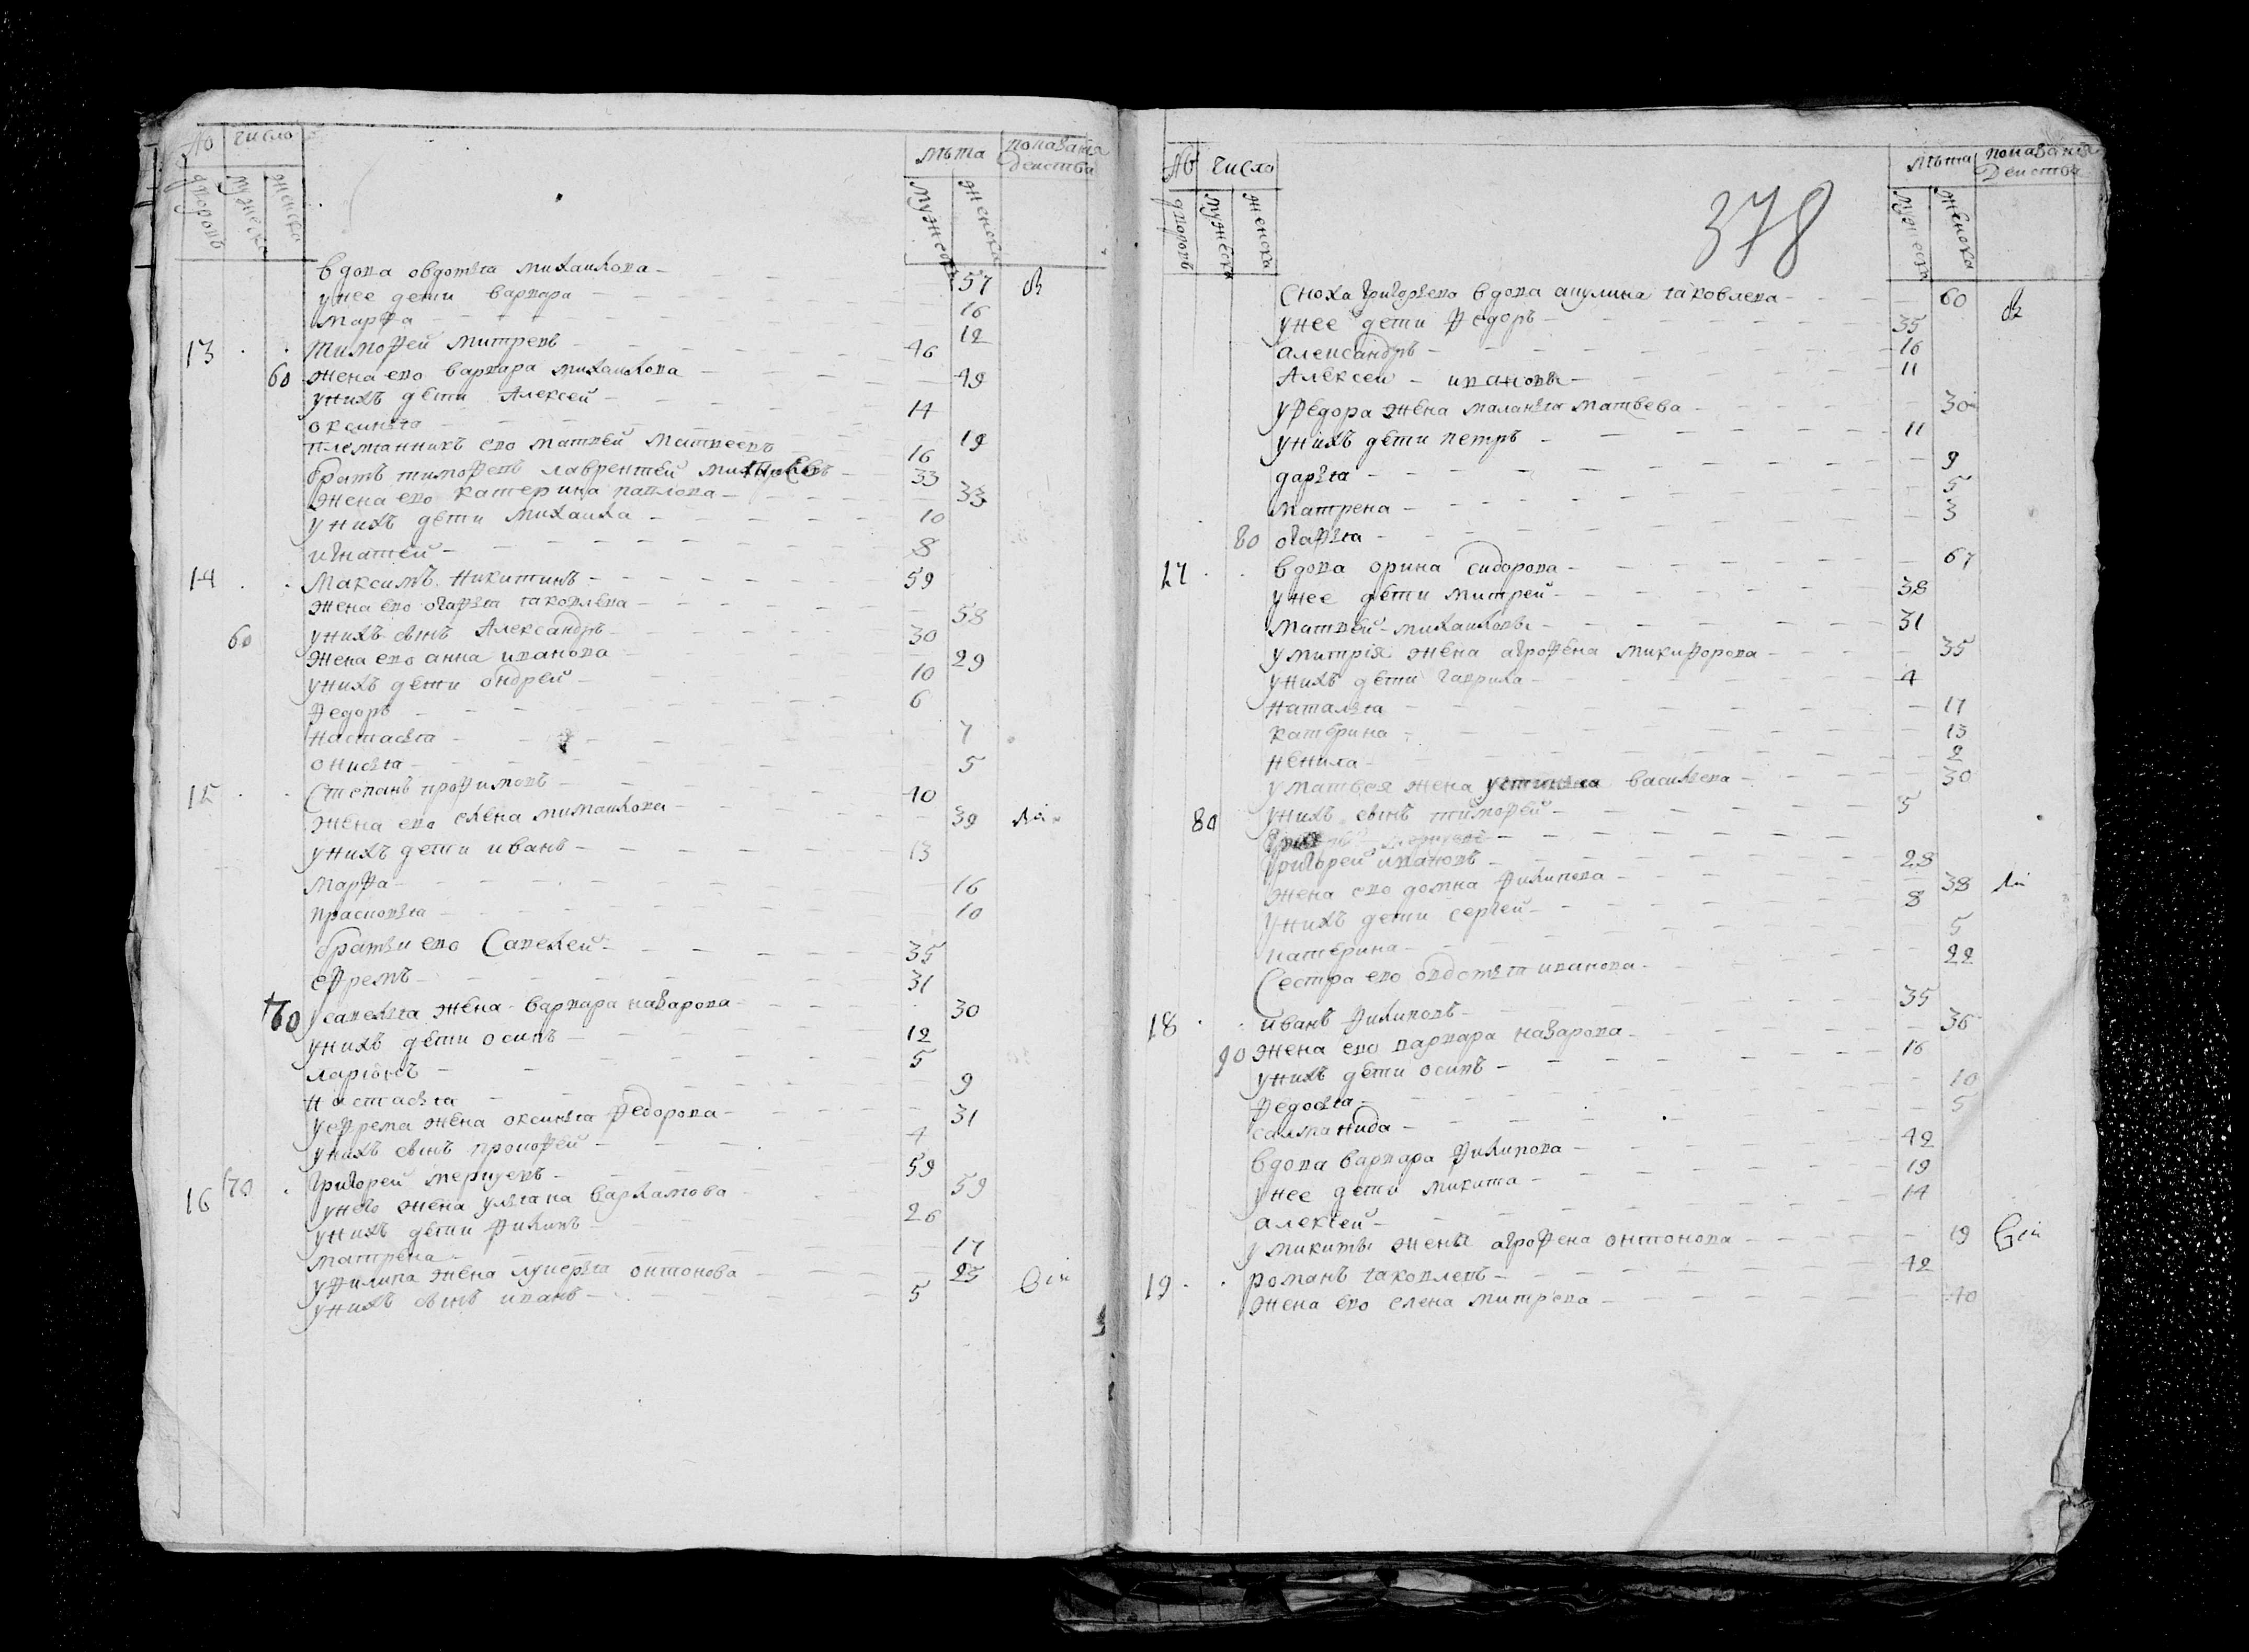 № число лѣта показания
дворовъ мужеска женска мужеска женска действи
вдова овдотья михаилова 57
у нее дети варвара 16
марфа 12
13 тимофей митревъ 46
60 жена ево варвара михаилова 49
у нихъ дети Алексей 14
оксинья 12
племянникъ ево матвей матвеевъ 16
братъ тимофеевъ лаврентей 33
жена ево катерина павлова 33
у нихъ дети михаила 10
игнатей 8
14 Максимъ никитинъ 59
жена ево огафья яковлева 58
60 у нихъ сынъ Александръ 30
жена ево анна иванова 29
у нихъ дети ондрей 10
федоръ 6
настасья 7
онисья 5
15 Степанъ трофимовъ 40
жена ево елена 39
у нихъ дети иванъ 13
марфа 16
прасковья 10
братьи ево Савелей 35
ефремъ 31
70 у савелья жена варвара назарова 30
у нихъ дети осипъ 12
ларионъ 5
настасья 9
у ефрема жена оксинья федорова 31
у нихъ сынъ прокофей 4
16 70 григорей меркуевъ 59
у него жена ульяна варламова 59
у нихъ дети филипъ 26
матрена 17
у филипа жена лукерья онтонова 25
у нихъ сынъ иванъ 5
№ число лѣта показания
дворовъ мужеска женска мужеска женска действи
378
сноха григорьева вдова акулина яковлева 60
у нее дети федоръ 35
александръ 16
Алексей ивановы 11
у федора жена маланья матвева 30
у нихъ дети петръ 11
дарья 9
матрена 5
80 огафья 3
17 вдова орина сидорова 67
у нее дети митрей 38
матвей михаиловы 31
у митрия жена агрофена микифорова 35
у нихъ дети гаврила 4
наталья 17
катерина 13
ненила 2
у матвея жена устинья васильева 30
80 у нихъ сынъ тимофей 5
григорей ивановъ 28
жена ево домна филипова 38
у нихъ дети сергей 8
катерина 5
Сестра ево овдотья иванова 22
18 иванъ филиповъ 35
90 жена ево варвара назарова 36
у нихъ дети осипъ 16
федосья 10
саламанида 5
вдова варвара филипова 42
у нее дети микита 19
алексей 14
у микиты жена агрофена онтонова 19
19 романъ яковлевъ 42
жена ево елена митрева 40